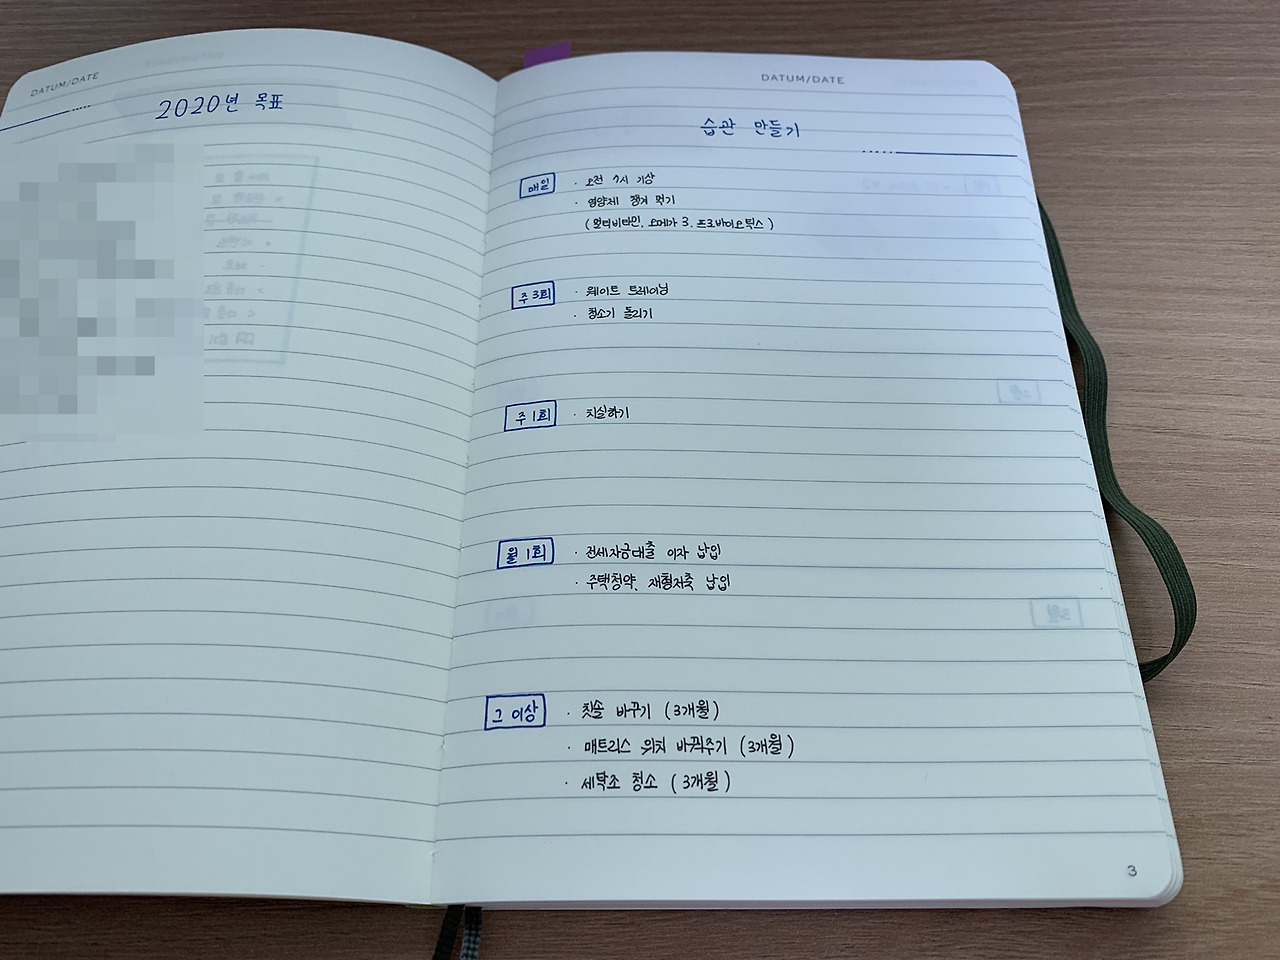 DATUM/DATE
2020년 목표
DATUM/DATE
습관 만들기
매일
· 오전 7시 기상
· 영양제 챙겨 먹기
(멀티비타민, 오메가 3, 프로바이오틱스)
주 3회
· 웨이트 트레이닝
· 청소기 돌리기
주 1회
· 치실하기
월 1회
· 전세자금대출 이자 납입
· 주택청약, 재형저축 납입
그 이상
· 칫솔 바꾸기 (3개월)
· 매트리스 위치 바꿔주기 (3개월)
· 세탁조 청소 (3개월)
3